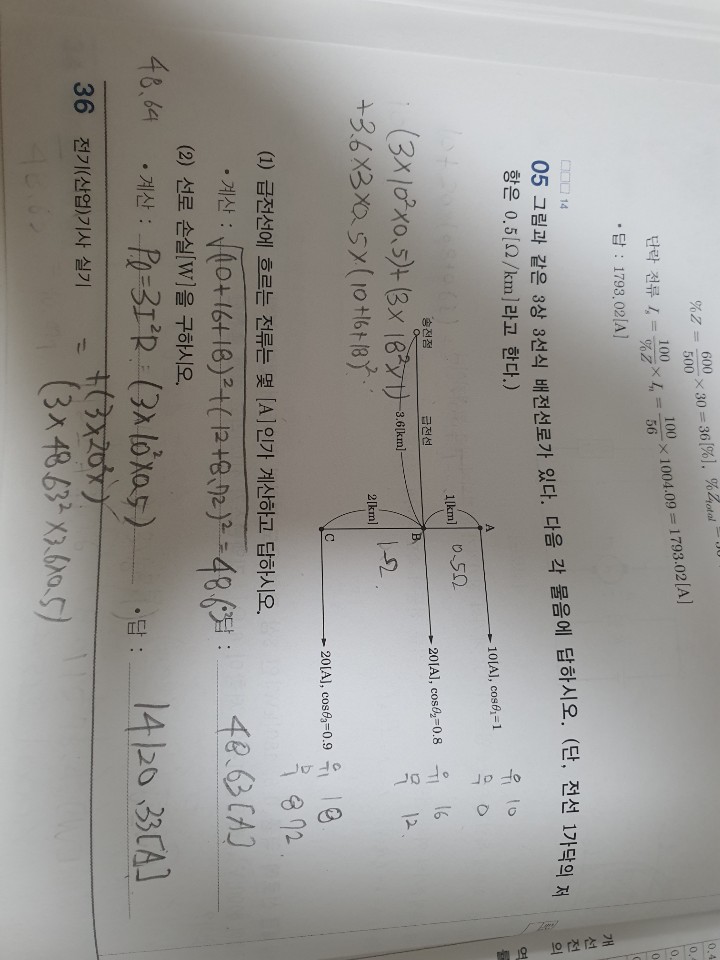 %Z = 600/500 × 30 = 36[%], %Ztotal =
단락 전류 Is = 100/%Z × In = 100/56 × 1004.09 = 1793.02[A]
• 답 : 1793.02[A]
□□□ 14
05 그림과 같은 3상 3선식 배전선로가 있다. 다음 각 물음에 답하시오. (단, 전선 1가닥의 저
항은 0.5[Ω/km]라고 한다.)
A
10[A], cosθ1=1
유 10
무 0
1[km]
0.5Ω
송전점
급전선
3.6[km]
B
20[A], cosθ2=0.8
유 16
무 12
2[km]
1Ω
C
20[A], cosθ3=0.9
유 18
무 8.72
(3×10²×0.5)+(3×18²×1)
+3.6×3×0.5×(10+16+18)²
(1) 급전선에 흐르는 전류는 몇 [A]인가 계산하고 답하시오.
• 계산 : √(10+16+18)²+(12+8.72)² = 48.63
• 답 : 48.63[A]
(2) 선로 손실[W]을 구하시오.
48.64
• 계산 : Pl = 3I²R = (3×10²×0.5)
• 답 : 14120.33[A]
+(3×20²×1)
= (3×48.63²×3.6×0.5)
36 전기(산업)기사 실기
개
선
전
의
역
률